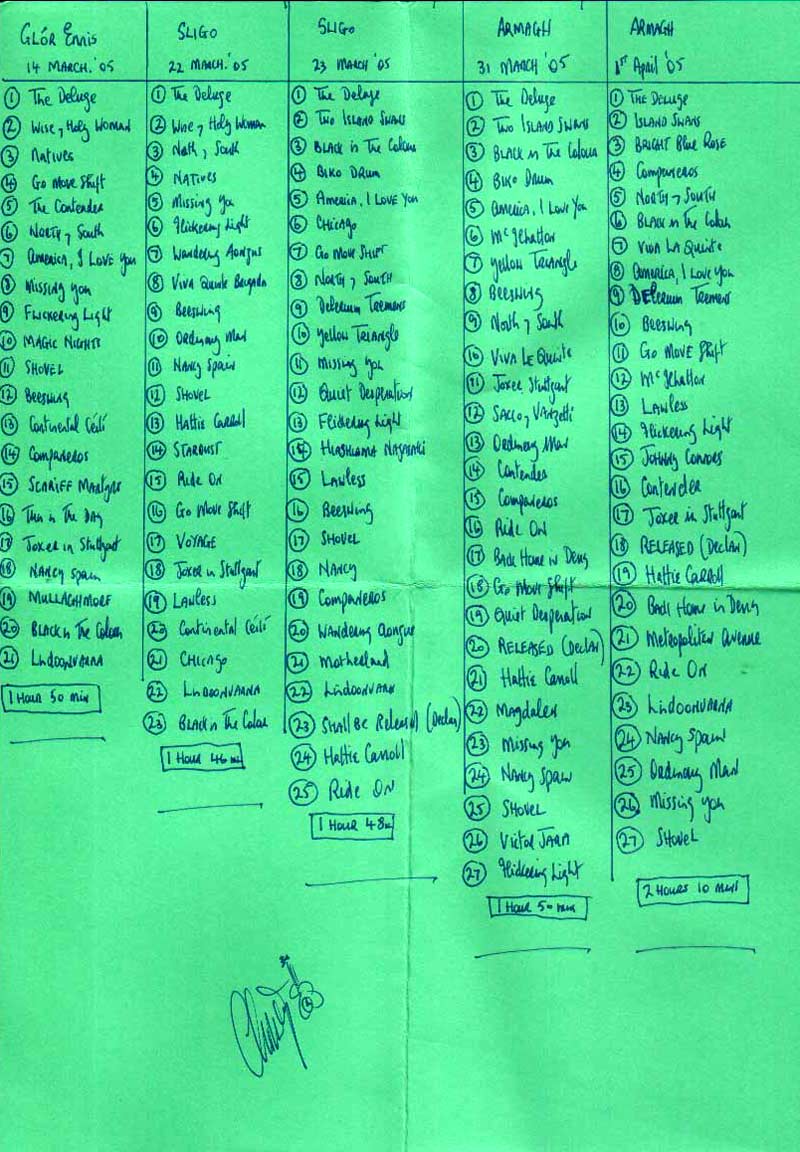 GLÓR ENNIS
14 MARCH. '05
① The Deluge
② Wise, Holy Woman
③ Natives
④ Go Move Shift
⑤ The Contender
⑥ North, South
⑦ America, I Love You
⑧ Missing You
⑨ Flickering Light
⑩ MAGIC NIGHTS
⑪ SHOVEL
⑫ Beeswing
⑬ Continental Céilí
⑭ Companeros
⑮ SCARIFF Martyrs
⑯ This is The Day
⑰ Joxer in Stuttgart
⑱ NANCY Spain
⑲ MULLAGHMORE
⑳ BLACK is The Colour
㉑ LISDOONVARNA
1 Hour 50 min
SLIGO
22 MARCH. '05
① The Deluge
② Wise, Holy Woman
③ North, South
④ NATIVES
⑤ Missing You
⑥ Flickering Light
⑦ Wandering Aongus
⑧ Viva Quinte Brigada
⑨ Beeswing
⑩ Ordinary Man
⑪ Nancy Spain
⑫ SHOVEL
⑬ Hattie Carroll
⑭ STARDUST
⑮ Ride On
⑯ Go Move Shift
⑰ VOYAGE
⑱ Joxer in Stuttgart
⑲ LAWLESS
⑳ Continental Céilí
㉑ CHICAGO
㉒ LISDOONVARNA
㉓ BLACK is The Colour
1 Hour 46 m
SLIGO
23 MARCH '05
① The Deluge
② Two ISLAND SWANS
③ BLACK is The Colour
④ BIKO DRUM
⑤ America, I Love You
⑥ CHICAGO
⑦ Go MOVE SHIFT
⑧ NORTH, SOUTH
⑨ Delerium Tremens
⑩ Yellow Triangle
⑪ Missing You
⑫ Quiet Desperation
⑬ Flickering Light
⑭ HIROSHIMA NAGASAKI
⑮ LAWLESS
⑯ Beeswing
⑰ SHOVEL
⑱ NANCY
⑲ Companeros
⑳ WANDERING Aongus
㉑ Motherland
㉒ LISDOONVARN
㉓ SHALL Be Released (Declan)
㉔ Hattie Carroll
㉕ Ride ON
1 HOUR 48m
ARMAGH
31 MARCH '05
① The Deluge
② Two ISLAND SWANS
③ BLACK is The Colour
④ BIKO DRUM
⑤ America, I Love You
⑥ McIlhatton
⑦ Yellow Triangle
⑧ Beeswing
⑨ North, South
⑩ VIVA LE Quinte
⑪ Joxer Stuttgart
⑫ SACCO, Vanzetti
⑬ Ordinary Man
⑭ Contender
⑮ Companeros
⑯ Ride ON
⑰ Back Home in Derry
⑱ Go Move Shift
⑲ Quiet Desperation
⑳ RELEASED (Declan)
㉑ Hattie Carroll
㉒ Magdalen
㉓ Missing You
㉔ Nancy Spain
㉕ SHOVEL
㉖ VICTOR JARA
㉗ Flickering Light
1 HOUR 50 min
ARMAGH
1st April '05
① THE DELUGE
② ISLAND SWANS
③ BRIGHT Blue ROSE
④ Companeros
⑤ NORTH, SOUTH
⑥ BLACK is The Colour
⑦ VIVA LA Quinte
⑧ America, I Love You
⑨ Delerium Tremens
⑩ Beeswing
⑪ Go MOVE Shift
⑫ McIlhatton
⑬ LAWLESS
⑭ Flickering Light
⑮ JOHNNY CONNORS
⑯ Contender
⑰ Joxer in Stuttgart
⑱ RELEASED (Declan)
⑲ Hattie Carroll
⑳ Back Home in Derry
㉑ Metropolitan Avenue
㉒ Ride ON
㉓ LISDOONVARNA
㉔ Nancy Spain
㉕ Ordinary Man
㉖ Missing You
㉗ SHOVEL
2 HOURS 10 mins
Christy